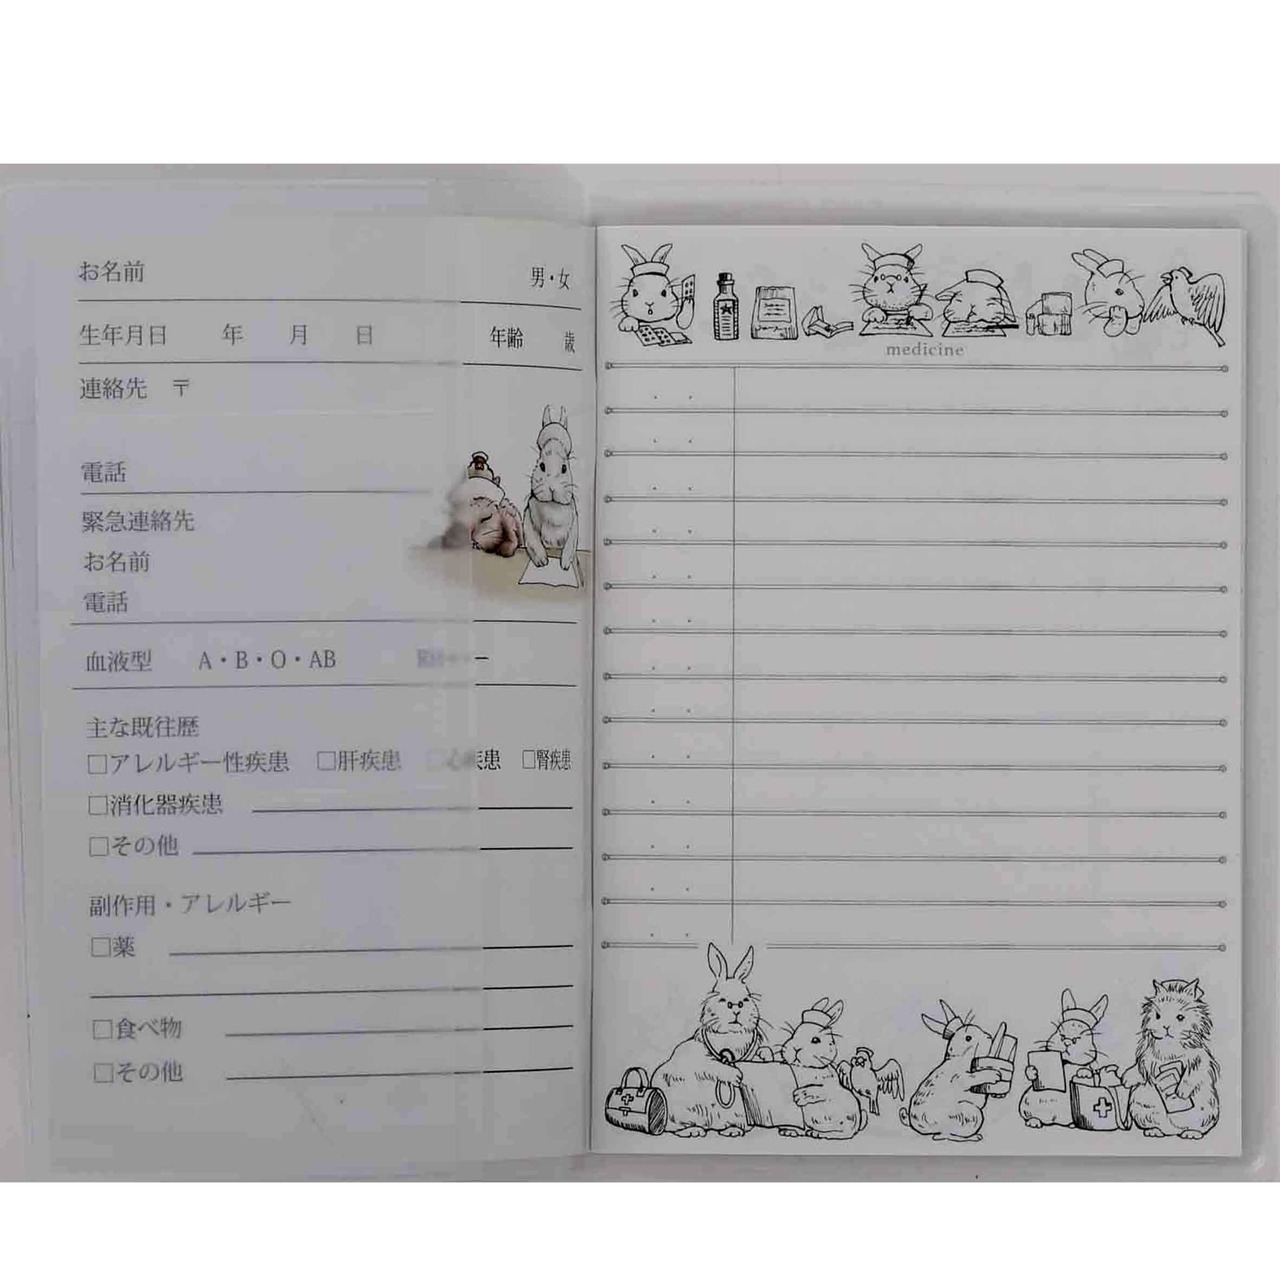 お名前 男・女
生年月日 年 月 日 年齢 歳
連絡先 〒
電話
緊急連絡先
お名前
電話
血液型 A・B・O・AB
主な既往歴
□アレルギー性疾患 □肝疾患 □心疾患 □腎疾患
□消化器疾患
□その他
副作用・アレルギー
□薬
□食べ物
□その他
medicine